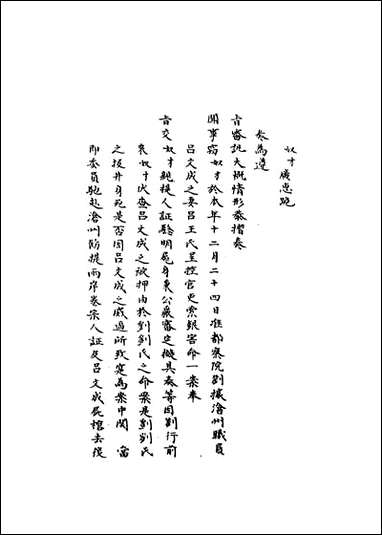 奴才廣惠跪
奏為遵
旨審訊大概情形恭摺奏
聞事竊奴才於本年十二月二十四日准都察院劄據滄州職員
呂文成之妻呂王氏呈控官吏索銀害命一案奉
旨交奴才親提人証驗明屍身秉公嚴審定擬具奏等因劄行前
來奴才伏查呂文成之被押由於劉劉氏之命案是劉劉氏
之投井身死是否因呂文成之威逼所致寔為案中関 當
即委員馳赴滄州飭提兩岸卷宗人証及呂文成屍棺去後